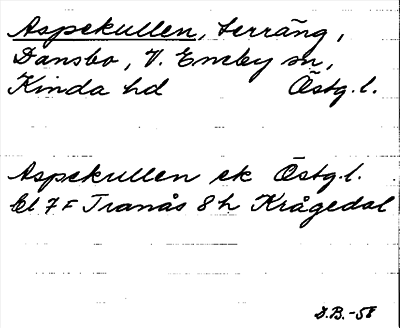 Aspekullen, terräng,
Dansbo, V. Eneby sn,
Kinda hd Östg.l.
Aspekullen ek Östg.l.
bl 7F Tranås 8h Krågedal
D.B.-58